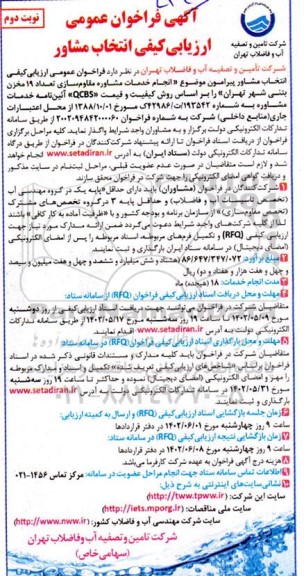 نوبت دوم
آگهی فراخوان عمومی
ارزیابی کیفی انتخاب مشاور
شرکت تامین و تصفیه
آب و فاضلاب تهران
شرکت تأمین و تصفیه آب و فاضلاب تهران در نظر دارد فراخوان عمومی ارزیابی کیفی
انتخاب مشاور پیرامون موضوع « انجام خدمات مشاوره مقاوم‌سازی تعداد ۱۹ مخزن
بتنی شهر تهران» را بر اساس روش کیفیت و قیمت «QCBS» آئین‌نامه خدمات
مشاوره به شماره ۱۹۳۵۴۲/ت۴۲۹۸۶ک مورخ ۱۳۸۸/۱۰/۰۱ از محل اعتبارات
جاری(منابع داخلی) شرکت به شماره فراخوان ۲۰۰۲۰۹۴۸۴۲۰۰۰۰۶۰ از طریق سامانه
تدارکات الکترونیکی دولت برگزار و به مشاوران واجد شرایط واگذار نماید. کلیه مراحل برگزاری
فراخوان از دریافت اسناد فراخوان تا ارائه پیشنهاد شرکت‌کنندگان در فراخوان از طریق درگاه
تدارکات الکترونیکی دولت (ستاد) ایران به آدرس www.setadiran.ir انجام خواهد
شد و لازم است متقاضیان در صورت عدم عضویت قبلی، مراحل ثبت‌نام در سایت مذکور
و دریافت گواهی امضای الکترونیکی را جهت شرکت در فراخوان محقق سازند.
شرکت‌کنندگان در فراخوان (مشاوران) باید دارای حداقل«پایه یک در گروه مهندسی آب
(تخصص تأسیسات آب و فاضلاب) و حداقل پایه ۳ درگروه تخصص‌های مشترک
(تخصص مقاوم‌سازی)» از سازمان برنامه و بودجه کشور و با «ظرفیت آماده به کار کافی» باشند
لذا از کلیه شرکت‌های واجد شرایط دعوت می‌گردد ضمن ارائه مدارک مورد نیاز جهت
ارزیابی کیفی (RFQ) و تکمیل فرم‌های مربوطه، اسناد مربوطه را پس از امضای الکترونیکی
(امضای دیجیتال) در سامانه ستاد ایران بارگذاری و ثبت نمایند.
مبلغ برآورد: ۸۶/۶۴۷/۳۴۷/۰۷۲ (هشتاد و شش میلیارد و ششصد و چهل و هفت میلیون و سیصد
و چهل و هفت هزار و هفتاد و دو) ریال
مدت انجام خدمات: ۱۸ (هیجده) ماه
مهلت و محل دریافت اسناد ارزیابی کیفی فراخوان (RFQ) از سامانه ستاد:
متقاضیان شرکت در فراخوان می‌توانند جهت دریافت اسناد ارزیابی کیفی از روز دوشنبه
مورخ ۱۴۰۲/۰۵/۰۹ تا ساعت ۱۹ روز سه‌شنبه مورخ ۱۴۰۲/۰۵/۱۷ از طریق سامانه تدارکات
الکترونیکی دولت به آدرس www.setadiran.ir اقدام نمایند.
مهلت و محل بارگذاری اسناد ارزیابی کیفی فراخوان (RFQ) در سامانه ستاد:
متقاضیان شرکت در فراخوان باید کلیه مدارک و مستندات قانونی ذکر شده در اسناد
فراخوان بر اساس «شاخص‌های ارزیابی کیفی تعریف شده» را تکمیل و اسناد و مدارک مربوطه را
مهر و امضای الکترونیکی (امضای دیجیتال) نموده و حداکثر تا ساعت ۱۹ روز سه‌شنبه
مورخ ۱۴۰۲/۰۵/۳۱ در سامانه تدارکات الکترونیکی دولت به آدرس www.setadiran.ir
بارگذاری و ثبت نمایند.
زمان جلسه بازگشایی اسناد ارزیابی کیفی (RFQ) و ارسال به کمیته ارزیابی:
ساعت ۹ روز چهارشنبه مورخ ۱۴۰۲/۰۶/۰۱ در دفتر قراردادها
زمان بازگشایی نتیجه ارزیابی کیفی (RFQ) در سامانه ستاد:
ساعت ۹ روز چهارشنبه مورخ ۱۴۰۲/۰۶/۰۸ در دفتر قراردادها
هزینه درج آگهی فراخوان به عهده شرکت کارفرما می‌باشد.
اطلاعات تماس سامانه ستاد جهت انجام مراحل عضویت در سامانه: مرکز تماس ۱۴۵۶-۰۲۱
نشانی سایت‌های اینترنتی به شرح ذیل:
سایت این شرکت: (http://ww.tpww.ir)
سایت ملی مناقصات: (http://iets.mporg.ir)
سایت شرکت مهندسی آب و فاضلاب کشور: (http://www.nww.ir)
شرکت تامین و تصفیه آب و فاضلاب تهران
(سهامی خاص)